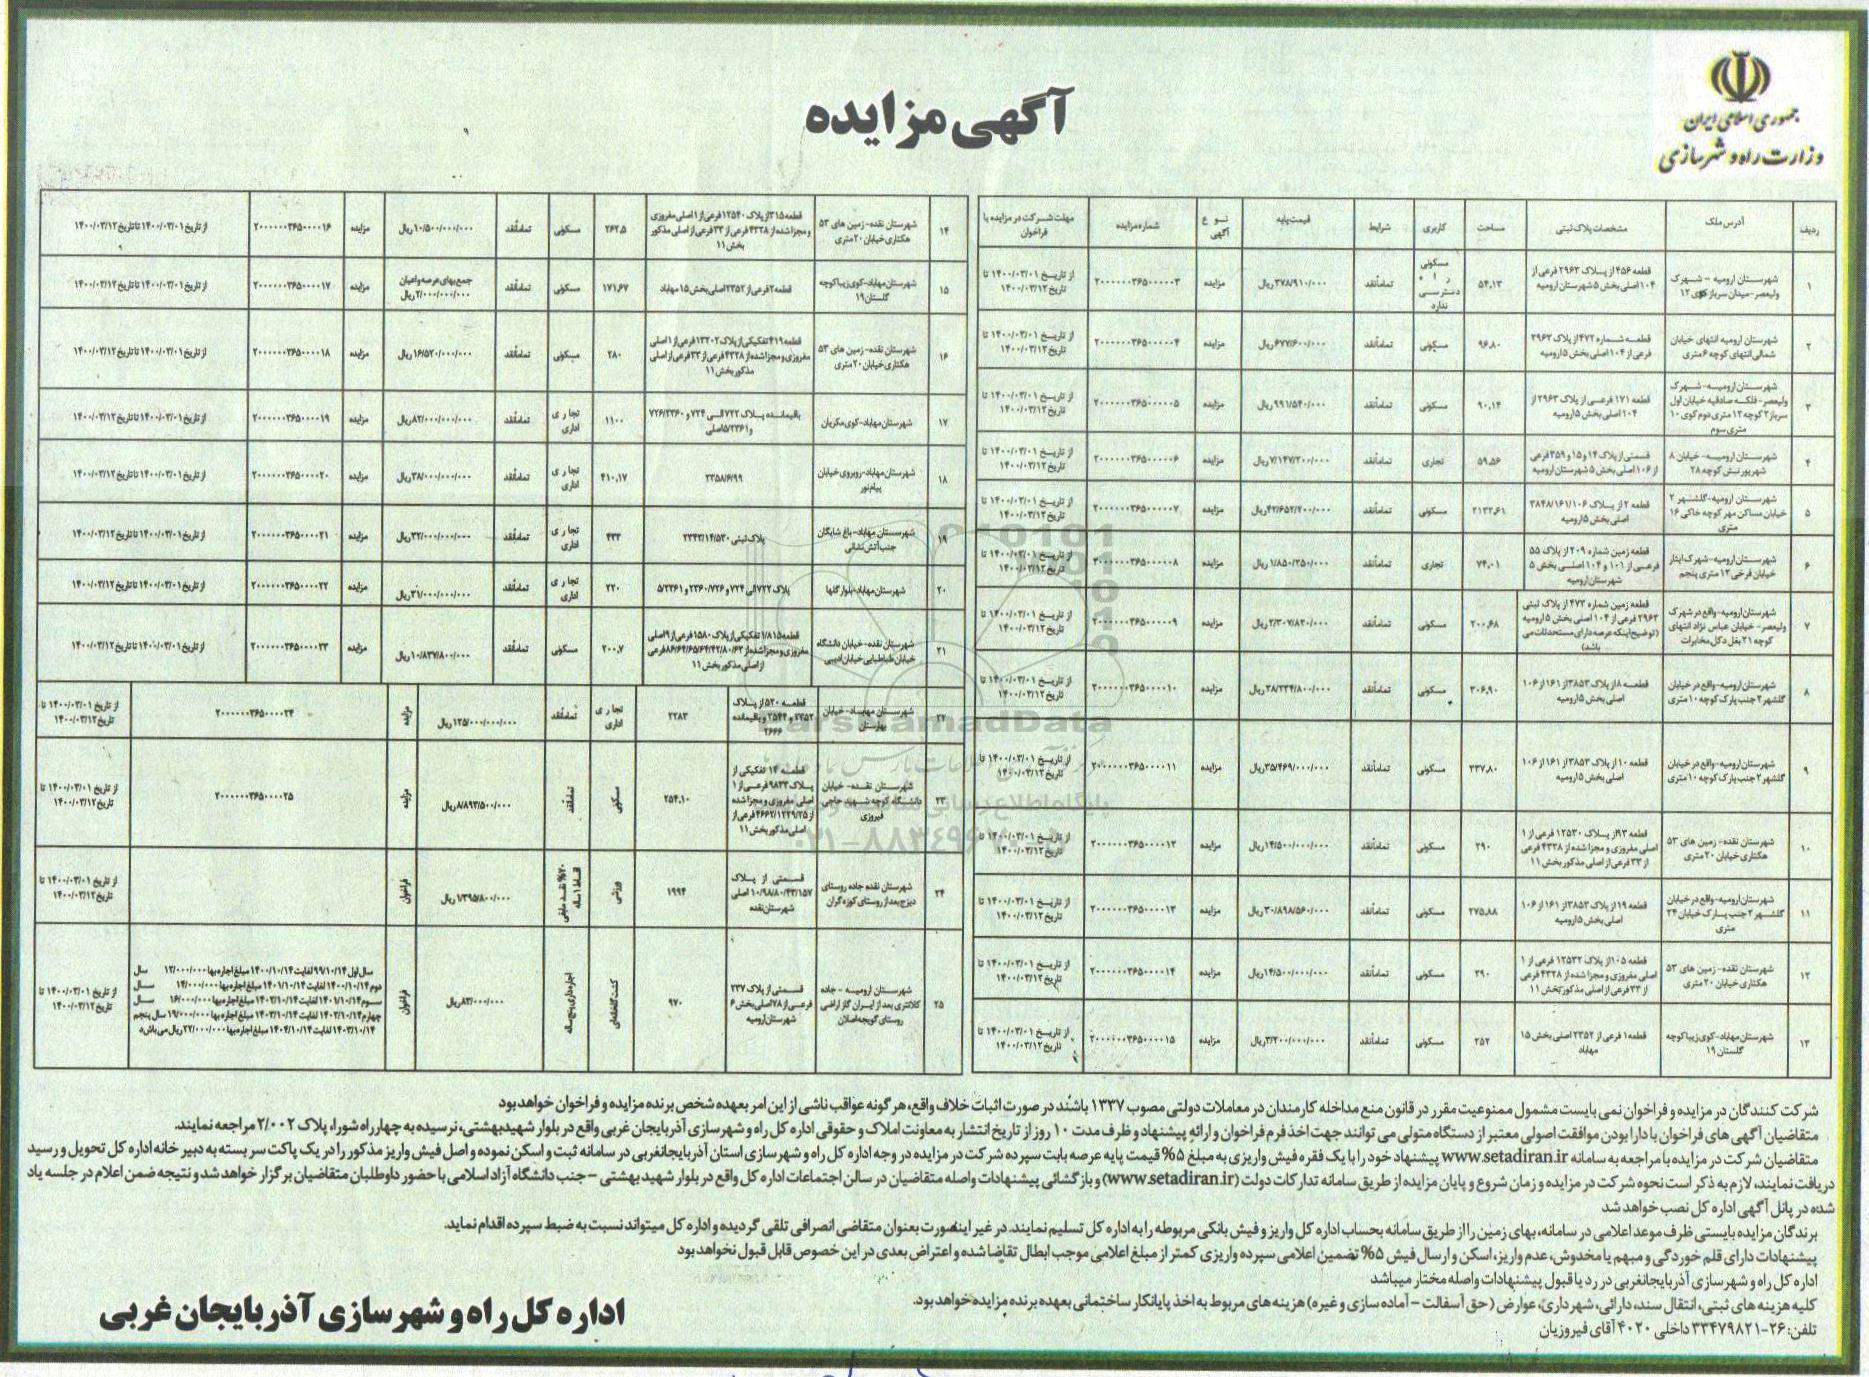 جمهوری اسلامی ایران
وزارت راه و شهرسازی
آگهی مزایده
ردیف | آدرس ملک | مشخصات پلاک ثبتی | مساحت | کاربری | شرایط | قیمت پایه | نوع آگهی | شماره مزایده | مهلت شرکت در مزایده یا فراخوان
۱ | شهرستان ارومیه – شهرک ولیعصر-میدان سرباز کوی ۱۲ | قطعه ۴۵۶ از پلاک ۲۹۶۳ فرعی از ۱۰۴ اصلی بخش ۵ شهرستان ارومیه | ۵۴,۱۳ | مسکونی راه دسترسی ندارد | تماماً نقد | ۳۷۸/۹۱۰/۰۰۰ ریال | مزایده | ۲۰۰۰۰۰۰۳۶۵۰۰۰۰۰۳ | از تاریخ ۱۴۰۰/۰۳/۰۱ تا تاریخ ۱۴۰۰/۰۳/۱۲
۲ | شهرستان ارومیه انتهای خیابان شمالی انتهای کوچه ۶ متری | قطعه شماره ۴۷۲ از پلاک ۲۹۶۳ فرعی از ۱۰۴ اصلی بخش ۵ ارومیه | ۹۶,۸۰ | مسکونی | تماماً نقد | ۶۷۷/۶۰۰/۰۰۰ ریال | مزایده | ۲۰۰۰۰۰۰۳۶۵۰۰۰۰۰۴ | از تاریخ ۱۴۰۰/۰۳/۰۱ تا تاریخ ۱۴۰۰/۰۳/۱۲
۳ | شهرستان ارومیه- شهرک ولیعصر- فلکه صادقیه خیابان اول سرباز ۲ کوچه ۱۲ متری دوم کوی ۱۰ متری سوم | قطعه ۱۷۱ فرعی از پلاک ۲۹۶۳ از ۱۰۴ اصلی بخش ۵ ارومیه | ۹۰,۱۴ | مسکونی | تماماً نقد | ۹۹۱/۵۴۰/۰۰۰ ریال | مزایده | ۲۰۰۰۰۰۰۳۶۵۰۰۰۰۰۵ | از تاریخ ۱۴۰۰/۰۳/۰۱ تا تاریخ ۱۴۰۰/۰۳/۱۲
۴ | شهرستان ارومیه- خیابان ۸ شهریور نبش کوچه ۲۸ | قسمتی از پلاک ۱۴ و ۱۵ و ۳۵۹ فرعی از ۱۰۶ اصلی بخش ۵ شهرستان ارومیه | ۵۹,۵۶ | تجاری | تماماً نقد | ۷/۱۴۷/۲۰۰/۰۰۰ ریال | مزایده | ۲۰۰۰۰۰۰۳۶۵۰۰۰۰۰۶ | از تاریخ ۱۴۰۰/۰۳/۰۱ تا تاریخ ۱۴۰۰/۰۳/۱۲
۵ | شهرستان ارومیه-گلشهر ۲ خیابان مساکن مهر کوچه خاکی ۱۶ متری | قطعه ۲ از پلاک ۳۸۴۸/۱۶۱/۱۰۶ اصلی بخش ۵ ارومیه | ۲۱۳۲,۶۱ | مسکونی | تماماً نقد | ۴۲/۶۵۲/۲۰۰/۰۰۰ ریال | مزایده | ۲۰۰۰۰۰۰۳۶۵۰۰۰۰۰۷ | از تاریخ ۱۴۰۰/۰۳/۰۱ تا تاریخ ۱۴۰۰/۰۳/۱۲
۶ | شهرستان ارومیه-شهرک ایثار خیابان فرخی ۱۲ متری پنجم | قطعه زمین شماره ۲۰۹ از پلاک ۵۵ فرعی از ۱۰۱ و ۱۰۴ اصلی بخش ۵ شهرستان ارومیه | ۷۴,۰۱ | تجاری | تماماً نقد | ۱/۸۵۰/۲۵۰/۰۰۰ ریال | مزایده | ۲۰۰۰۰۰۰۳۶۵۰۰۰۰۰۸ | از تاریخ ۱۴۰۰/۰۳/۰۱ تا تاریخ ۱۴۰۰/۰۳/۱۲
۷ | شهرستان ارومیه-واقع در شهرک ولیعصر- خیابان عباس نژاد انتهای کوچه ۲۱ بغل دکل مخابرات | قطعه زمین شماره ۴۷۳ از پلاک ثبتی ۲۹۶۳ فرعی از ۱۰۴ اصلی بخش ۵ ارومیه (توضیح اینکه عرصه دارای مستحدثات می باشد) | ۲۰۰,۶۸ | مسکونی | تماماً نقد | ۲/۳۰۷/۸۲۰/۰۰۰ ریال | مزایده | ۲۰۰۰۰۰۰۳۶۵۰۰۰۰۰۹ | از تاریخ ۱۴۰۰/۰۳/۰۱ تا تاریخ ۱۴۰۰/۰۳/۱۲
۸ | شهرستان ارومیه-واقع در خیابان گلشهر ۲ جنب پارک کوچه ۱۰ متری | قطعه ۸ از پلاک ۳۸۵۳ از ۱۶۱ از ۱۰۶ اصلی بخش ۵ ارومیه | ۳۰۶,۹۰ | مسکونی | تماماً نقد | ۲۸/۲۳۴/۸۰۰/۰۰۰ ریال | مزایده | ۲۰۰۰۰۰۰۳۶۵۰۰۰۰۱۰ | از تاریخ ۱۴۰۰/۰۳/۰۱ تا تاریخ ۱۴۰۰/۰۳/۱۲
۹ | شهرستان ارومیه-واقع در خیابان گلشهر ۲ جنب پارک کوچه ۱۰ متری | قطعه ۱۰ از پلاک ۳۸۵۳ از ۱۶۱ از ۱۰۶ اصلی بخش ۵ ارومیه | ۳۳۷,۸۰ | مسکونی | تماماً نقد | ۳۵/۴۶۹/۰۰۰/۰۰۰ ریال | مزایده | ۲۰۰۰۰۰۰۳۶۵۰۰۰۰۱۱ | از تاریخ ۱۴۰۰/۰۳/۰۱ تا تاریخ ۱۴۰۰/۰۳/۱۲
۱۰ | شهرستان نقده- زمین های ۵۳ هکتاری خیابان ۲۰ متری | قطعه ۹۳ از پلاک ۱۲۵۳۰ فرعی از ۱ اصلی مفروزی و مجزا شده از ۴۳۲۸ فرعی از ۳۳ فرعی از اصلی مذکور بخش ۱۱ | ۲۹۰ | مسکونی | تماماً نقد | ۱۴/۵۰۰/۰۰۰/۰۰۰ ریال | مزایده | ۲۰۰۰۰۰۰۳۶۵۰۰۰۰۱۲ | از تاریخ ۱۴۰۰/۰۳/۰۱ تا تاریخ ۱۴۰۰/۰۳/۱۲
۱۱ | شهرستان ارومیه-واقع در خیابان گلشهر ۲ جنب پارک خیابان ۲۴ متری | قطعه ۱۹ از ۳۸۵۳ از ۱۶۱ از ۱۰۶ اصلی بخش ۵ ارومیه | ۲۷۵,۸۸ | مسکونی | تماماً نقد | ۳۰/۸۹۸/۵۶۰/۰۰۰ ریال | مزایده | ۲۰۰۰۰۰۰۳۶۵۰۰۰۰۱۳ | از تاریخ ۱۴۰۰/۰۳/۰۱ تا تاریخ ۱۴۰۰/۰۳/۱۲
۱۲ | شهرستان نقده- زمین های ۵۳ هکتاری خیابان ۲۰ متری | قطعه ۱۰۵ از پلاک ۱۲۵۳۲ فرعی از ۱ اصلی مفروزی و مجزا شده از ۴۳۲۸ فرعی از ۳۳ فرعی از اصلی مذکور بخش ۱۱ | ۲۹۰ | مسکونی | تماماً نقد | ۱۴/۵۰۰/۰۰۰/۰۰۰ ریال | مزایده | ۲۰۰۰۰۰۰۳۶۵۰۰۰۰۱۴ | از تاریخ ۱۴۰۰/۰۳/۰۱ تا تاریخ ۱۴۰۰/۰۳/۱۲
۱۳ | شهرستان مهاباد-کوی زیبا کوچه گلستان ۱۹ | قطعه ۱ فرعی از ۲۳۵۲ اصلی بخش ۱۵ مهاباد | ۲۵۲ | مسکونی | تماماً نقد | ۳/۲۰۰/۰۰۰/۰۰۰ ریال | مزایده | ۲۰۰۰۰۰۰۳۶۵۰۰۰۰۱۵ | از تاریخ ۱۴۰۰/۰۳/۰۱ تا تاریخ ۱۴۰۰/۰۳/۱۲
۱۴ | شهرستان نقده- زمین های ۵۳ هکتاری خیابان ۲۰ متری | قطعه ۳۱۵ از پلاک ۱۲۵۴۰ فرعی از ۱ اصلی مفروزی و مجزا شده از ۴۳۲۸ فرعی از ۳۳ فرعی از اصلی مذکور بخش ۱۱ | ۲۶۲,۵ | مسکونی | تماماً نقد | ۱۰/۵۰۰/۰۰۰/۰۰۰ ریال | مزایده | ۲۰۰۰۰۰۰۳۶۵۰۰۰۰۱۶ | از تاریخ ۱۴۰۰/۰۳/۰۱ تا تاریخ ۱۴۰۰/۰۳/۱۲
۱۵ | شهرستان مهاباد-کوی زیبا کوچه گلستان ۱۹ | قطعه ۲ فرعی از ۲۳۵۲ اصلی بخش ۱۵ مهاباد | ۱۷۱,۶۷ | مسکونی | تماماً نقد | جمع بهای عرصه و اعیان ۲/۰۰۰/۰۰۰/۰۰۰ ریال | مزایده | ۲۰۰۰۰۰۰۳۶۵۰۰۰۰۱۷ | از تاریخ ۱۴۰۰/۰۳/۰۱ تا تاریخ ۱۴۰۰/۰۳/۱۲
۱۶ | شهرستان نقده- زمین های ۵۳ هکتاری خیابان ۲۰ متری | قطعه ۴۱۹ تفکیکی از پلاک ۱۳۲۰۲ فرعی از ۱ اصلی مفروزی و مجزا شده از ۴۳۲۸ فرعی از ۳۳ فرعی از اصلی مذکور بخش ۱۱ | ۲۸۰ | مسکونی | تماماً نقد | ۱۶/۵۲۰/۰۰۰/۰۰۰ ریال | مزایده | ۲۰۰۰۰۰۰۳۶۵۰۰۰۰۱۸ | از تاریخ ۱۴۰۰/۰۳/۰۱ تا تاریخ ۱۴۰۰/۰۳/۱۲
۱۷ | شهرستان مهاباد-کوی مکریان | باقیمانده پلاک ۷۲۲ الی ۷۲۴ و ۷۲۶/۲۳۶۰ و ۵/۲۳۶۱ اصلی | ۱۱۰۰ | تجاری اداری | تماماً نقد | ۸۲/۰۰۰/۰۰۰/۰۰۰ ریال | مزایده | ۲۰۰۰۰۰۰۳۶۵۰۰۰۰۱۹ | از تاریخ ۱۴۰۰/۰۳/۰۱ تا تاریخ ۱۴۰۰/۰۳/۱۲
۱۸ | شهرستان مهاباد-روبروی خیابان پیام نور | ۲۳۵۸/۶/۹۹ | ۴۱۰,۱۷ | تجاری اداری | تماماً نقد | ۳۸/۰۰۰/۰۰۰/۰۰۰ ریال | مزایده | ۲۰۰۰۰۰۰۳۶۵۰۰۰۰۲۰ | از تاریخ ۱۴۰۰/۰۳/۰۱ تا تاریخ ۱۴۰۰/۰۳/۱۲
۱۹ | شهرستان مهاباد- باغ شایگان جنب آتش نشانی | پلاک ثبتی ۲۳۴۳/۱۴/۵۳۰ | ۴۳۳ | تجاری اداری | تماماً نقد | ۳۲/۰۰۰/۰۰۰/۰۰۰ ریال | مزایده | ۲۰۰۰۰۰۰۳۶۵۰۰۰۰۲۱ | از تاریخ ۱۴۰۰/۰۳/۰۱ تا تاریخ ۱۴۰۰/۰۳/۱۲
۲۰ | شهرستان مهاباد-بلوار گلها | پلاک ۷۲۲ الی ۷۲۴ و ۲۳۶۰/۷۲۶ و ۵/۲۳۶۱ | ۲۲۰ | تجاری اداری | تماماً نقد | ۳۱/۰۰۰/۰۰۰/۰۰۰ ریال | مزایده | ۲۰۰۰۰۰۰۳۶۵۰۰۰۰۲۲ | از تاریخ ۱۴۰۰/۰۳/۰۱ تا تاریخ ۱۴۰۰/۰۳/۱۲
۲۱ | شهرستان نقده- خیابان دانشگاه خیابان طباطبایی خیابان ادیبی | قطعه ۱/۸۱۵ تفکیکی از پلاک ۱۵۸۰ فرعی از ۹ اصلی مفروزی و مجزا شده از ۸۶/۶۴/۶۵/۶۴/۴۲/۸۰/۶۲ فرعی از اصلی مذکور بخش ۱۱ | ۲۰۰,۷ | مسکونی | تماماً نقد | ۱۰/۸۳۷/۸۰۰/۰۰۰ ریال | مزایده | ۲۰۰۰۰۰۰۳۶۵۰۰۰۰۲۳ | از تاریخ ۱۴۰۰/۰۳/۰۱ تا تاریخ ۱۴۰۰/۰۳/۱۲
۲۲ | شهرستان مهاباد- خیابان بهارستان | قطعه ۵۲۰ از پلاک ۲۳۵۲ و ۲۵۴۴ و باقیمانده ۲۶۶۶ | ۲۲۸۳ | تجاری اداری | تماماً نقد | ۱۲۵/۰۰۰/۰۰۰/۰۰۰ ریال | مزایده | ۲۰۰۰۰۰۰۳۶۵۰۰۰۰۲۴ | از تاریخ ۱۴۰۰/۰۳/۰۱ تا تاریخ ۱۴۰۰/۰۳/۱۲
۲۳ | شهرستان نقده- خیابان دانشگاه کوچه شهید حاجی فیروزی | قطعه ۱۴ تفکیکی از پلاک ۹۸۳۳ فرعی از ۱ اصلی مفروزی و مجزا شده از ۴۶۶۲/۱۲۲۹/۲۵ فرعی از اصلی مذکور بخش ۱۱ | ۲۵۴,۱۰ | مسکونی | تماماً نقد | ۸/۸۹۳/۵۰۰/۰۰۰ ریال | مزایده | ۲۰۰۰۰۰۰۳۶۵۰۰۰۰۲۵ | از تاریخ ۱۴۰۰/۰۳/۰۱ تا تاریخ ۱۴۰۰/۰۳/۱۲
۲۴ | شهرستان نقده جاده روستای دیزج بعد از روستای کوزه گران | قسمتی از پلاک ۱۰/۹۸/۸۰/۴۳/۱۵۷ اصلی شهرستان نقده | ۱۹۹۴ | ورزشی | ۲۰% نقد مابقی اقساط ۱ ساله | ۱/۳۹۵/۸۰۰/۰۰۰ ریال | فراخوان | از تاریخ ۱۴۰۰/۰۳/۰۱ تا تاریخ ۱۴۰۰/۰۳/۱۲
۲۵ | شهرستان ارومیه – جاده کلانتری بعد از ایران گاز اراضی روستای گویجه اصلان | قسمتی از پلاک ۲۳۷ فرعی از ۷۸ اصلی بخش ۶ شهرستان ارومیه | ۹۷۰ | کشت گلخانه‌ای | اجاره داری پنج ساله | ۸۲/۰۰۰/۰۰۰ ریال | فراخوان | سال اول ۹۹/۱۰/۱۴ لغایت ۱۴۰۰/۱۰/۱۴ مبلغ اجاره بها ۱۲/۰۰۰/۰۰۰ سال دوم ۱۴۰۰/۱۰/۱۴ لغایت ۱۴۰۱/۱۰/۱۴ مبلغ اجاره بها ۱۴/۰۰۰/۰۰۰ سال سوم ۱۴۰۱/۱۰/۱۴ لغایت ۱۴۰۲/۱۰/۱۴ مبلغ اجاره بها ۱۶/۰۰۰/۰۰۰ سال چهارم ۱۴۰۲/۱۰/۱۴ لغایت ۱۴۰۳/۱۰/۱۴ مبلغ اجاره بها ۱۹/۰۰۰/۰۰۰ سال پنجم ۱۴۰۳/۱۰/۱۴ لغایت ۱۴۰۴/۱۰/۱۴ مبلغ اجاره بها ۲۲/۰۰۰/۰۰۰ ریال می باشد | از تاریخ ۱۴۰۰/۰۳/۰۱ تا تاریخ ۱۴۰۰/۰۳/۱۲
شرکت کنندگان در مزایده و فراخوان نمی بایست مشمول ممنوعیت مقرر در قانون منع مداخله کارمندان در معاملات دولتی مصوب ۱۳۳۷ باشند در صورت اثبات خلاف واقع، هر گونه عواقب ناشی از این امر بعهده شخص برنده مزایده و فراخوان خواهد بود
متقاضیان آگهی های فراخوان با دارا بودن موافقت اصولی معتبر از دستگاه متولی می توانند جهت اخذ فرم فراخوان و ارائه پیشنهاد و ظرف مدت ۱۰ روز از تاریخ انتشار به معاونت املاک و حقوقی اداره کل راه و شهرسازی آذربایجان غربی واقع در بلوار شهید بهشتی، نرسیده به چهارراه شورا، پلاک ۲/۰۰۲ مراجعه نمایند.
متقاضیان شرکت در مزایده با مراجعه به سامانه www.setadiran.ir پیشنهاد خود را با یک فقره فیش واریزی به مبلغ ۵% قیمت پایه عرصه بابت سپرده شرکت در مزایده در وجه اداره کل راه و شهرسازی استان آذربایجانغربی در سامانه ثبت و اسکن نموده و اصل فیش واریز مذکور را در یک پاکت سر بسته به دبیر خانه اداره کل تحویل و رسید
دریافت نمایند، لازم به ذکر است نحوه شرکت در مزایده و زمان شروع و پایان مزایده از طریق سامانه تدارکات دولت (www.setadiran.ir) و بازگشائی پیشنهادات واصله متقاضیان در سالن اجتماعات اداره کل واقع در بلوار شهید بهشتی – جنب دانشگاه آزاد اسلامی با حضور داوطلبان متقاضیان برگزار خواهد شد و نتیجه ضمن اعلام در جلسه یاد
شده در پانل آگهی اداره کل نصب خواهد شد
برندگان مزایده بایستی ظرف موعد اعلامی در سامانه، بهای زمین را از طریق سامانه بحساب اداره کل واریز و فیش بانکی مربوطه را به اداره کل تسلیم نمایند. در غیر اینصورت بعنوان متقاضی انصرافی تلقی گردیده و اداره کل میتواند نسبت به ضبط سپرده اقدام نماید.
پیشنهادات دارای قلم خوردگی و مبهم یا مخدوش، عدم واریز، اسکن و ارسال فیش ۵% تضمین اعلامی سپرده واریزی کمتر از مبلغ اعلامی موجب ابطال تقاضا شده و اعتراض بعدی در این خصوص قابل قبول نخواهد بود
اداره کل راه و شهرسازی آذربایجانغربی در رد یا قبول پیشنهادات واصله مختار میباشد
کلیه هزینه های ثبتی، انتقال سند، دارائی، شهرداری، عوارض (حق آسفالت – آماده سازی و غیره) هزینه های مربوط به اخذ پایانکار ساختمانی بعهده برنده مزایده خواهد بود.
تلفن: ۲۶-۳۳۴۷۹۸۲۱ داخلی ۴۰۲۰ آقای فیروزیان
اداره کل راه و شهرسازی آذربایجان غربی
ParsNamadData